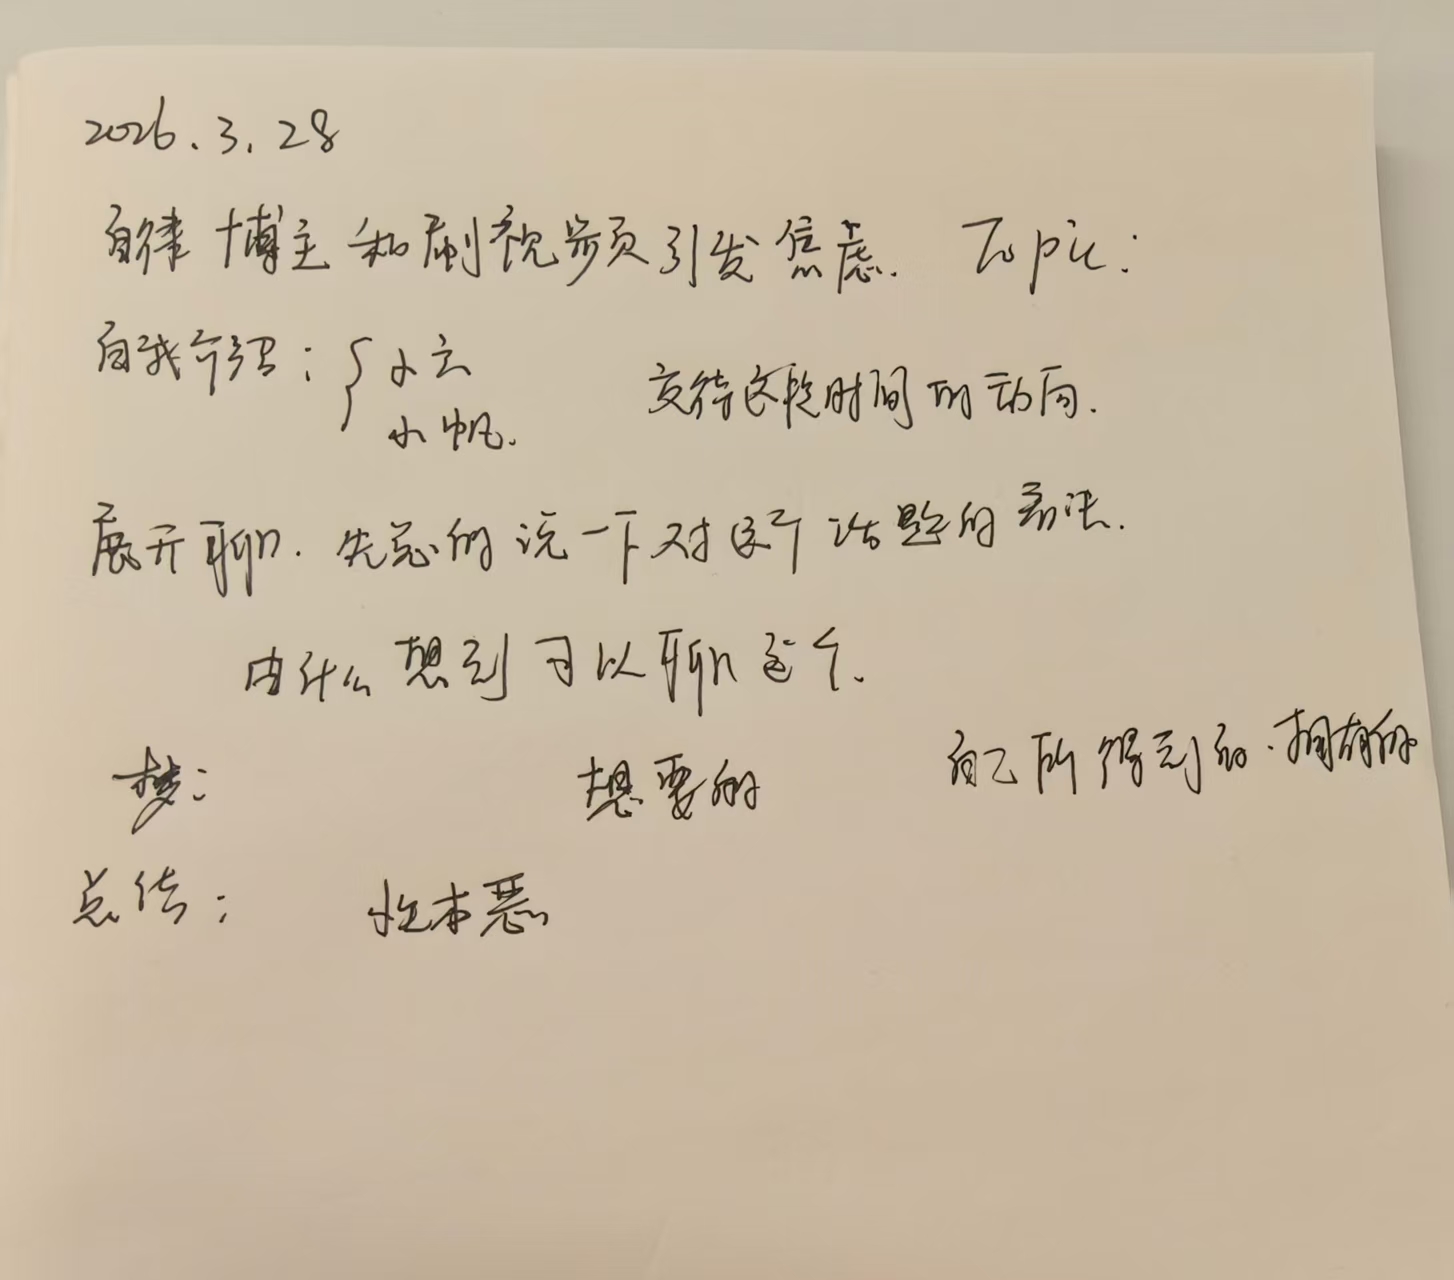 2026.3.28
自律博主和刷视频引发焦虑. Topic:
自我介绍: { 小云
小帆. 交待这段时间的动向.
展开聊. 先总的说一下对这个话题的看法.
由什么想到可以聊这个.
梦: 想要的 自己所得到的.拥有的
总结: 性本恶